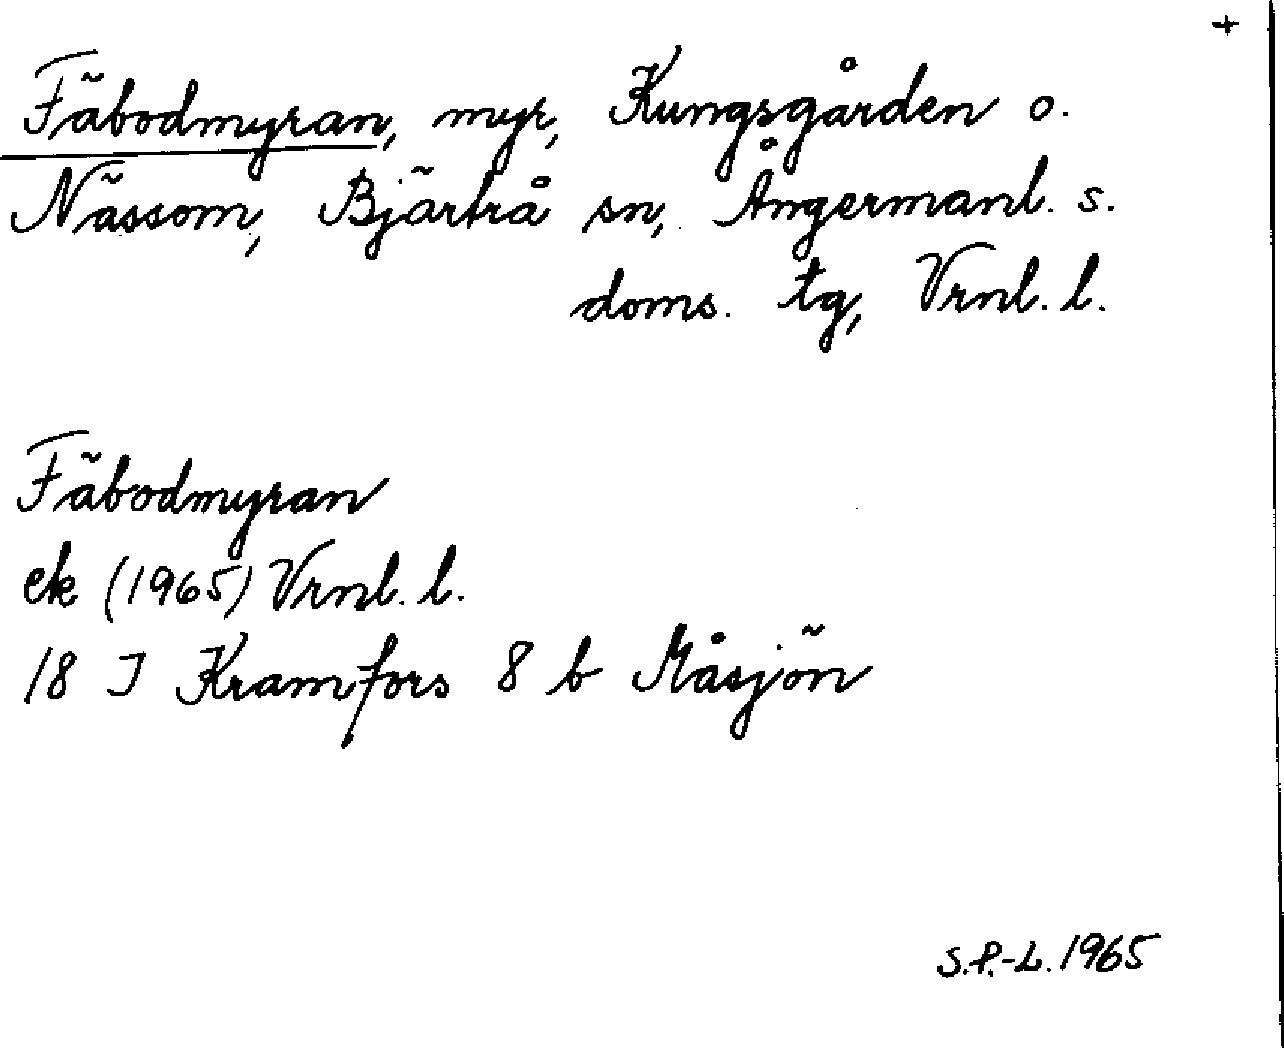 +
Fäbodmyran, myr, Kungsgården o.
Nässom, Bjärtrå sn, Ångermanl. s.
doms. tg, Vrnl. l.
Fäbodmyran
ek (1965) Vrnl. l.
18 I Kramfors 8 b Måsjön
S.P.-L. 1965